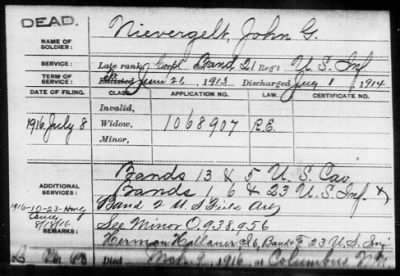 DEAD.
NAME OF SOLDIER: Nievergelt, John G.
SERVICE: Late rank, Corpl Band, 21 Regt U.S. Inf
TERM OF SERVICE: Enlisted June 26, 1913 Discharged July 1, 1914
DATE OF FILING. CLASS. APPLICATION NO. LAW. CERTIFICATE NO.
Invalid,
1916 July 8 Widow, 1068907 R.E.
Minor,
ADDITIONAL SERVICES: Bands 13 & 5 U.S. Cav.
Bands 1, 6 & 23 U.S. Inf. &
1916-10-23- Band 2 U S Field Arty
REMARKS: See Minor O, 938,956
Herman 23 U.S. Inf
Died 1916, at Columbus N.M.